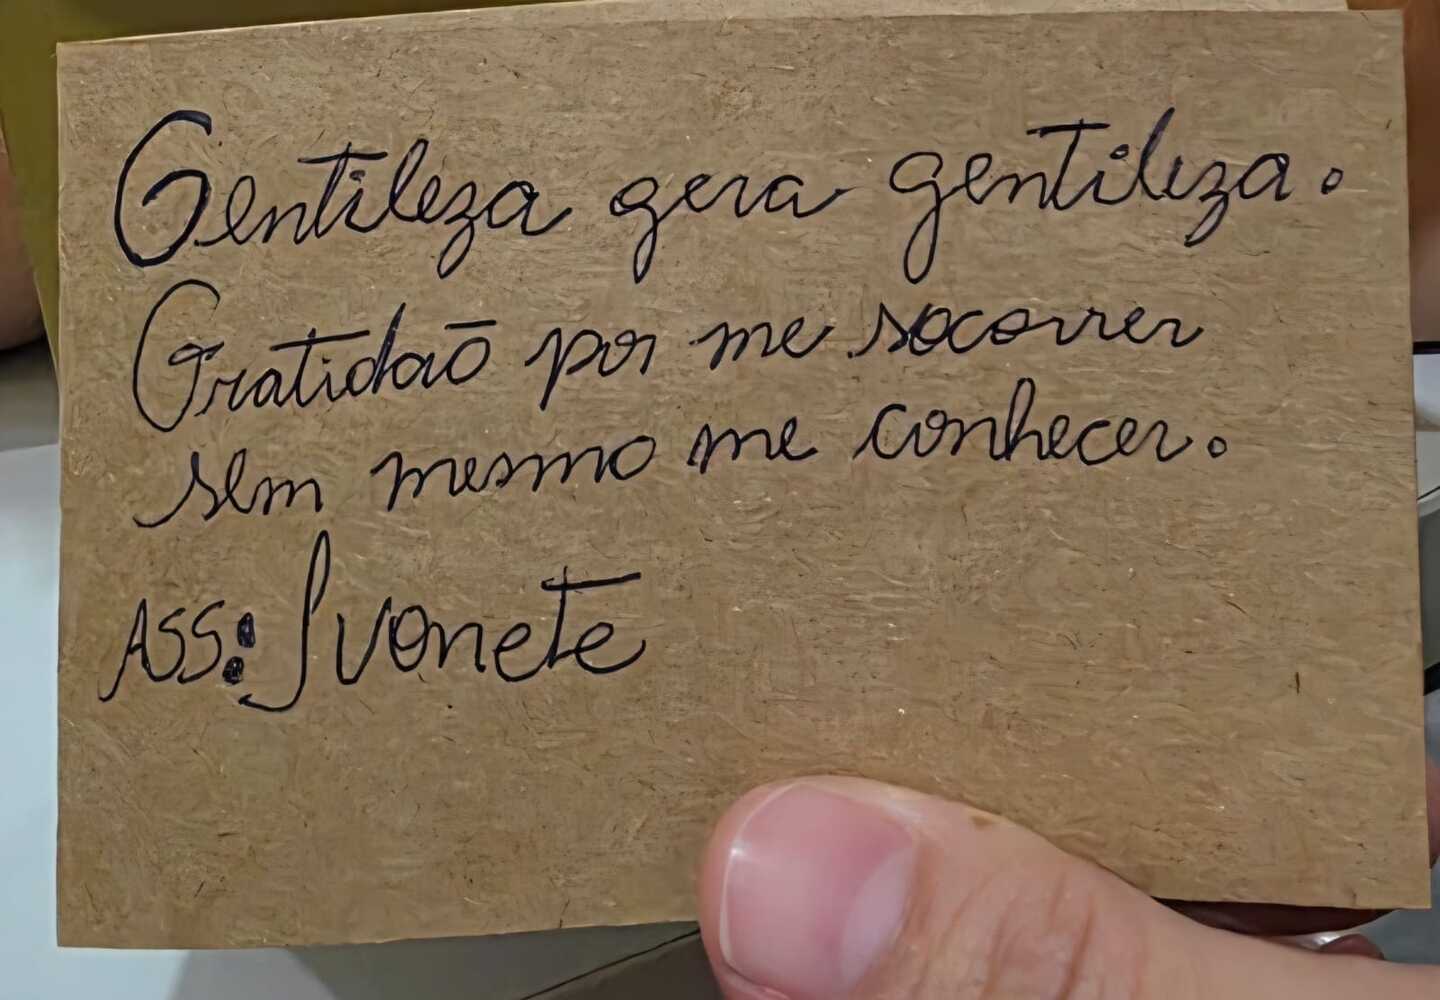 Gentileza gera gentileza.
Gratidão por me socorrer
sem mesmo me conhecer.
ASS: Ivonete